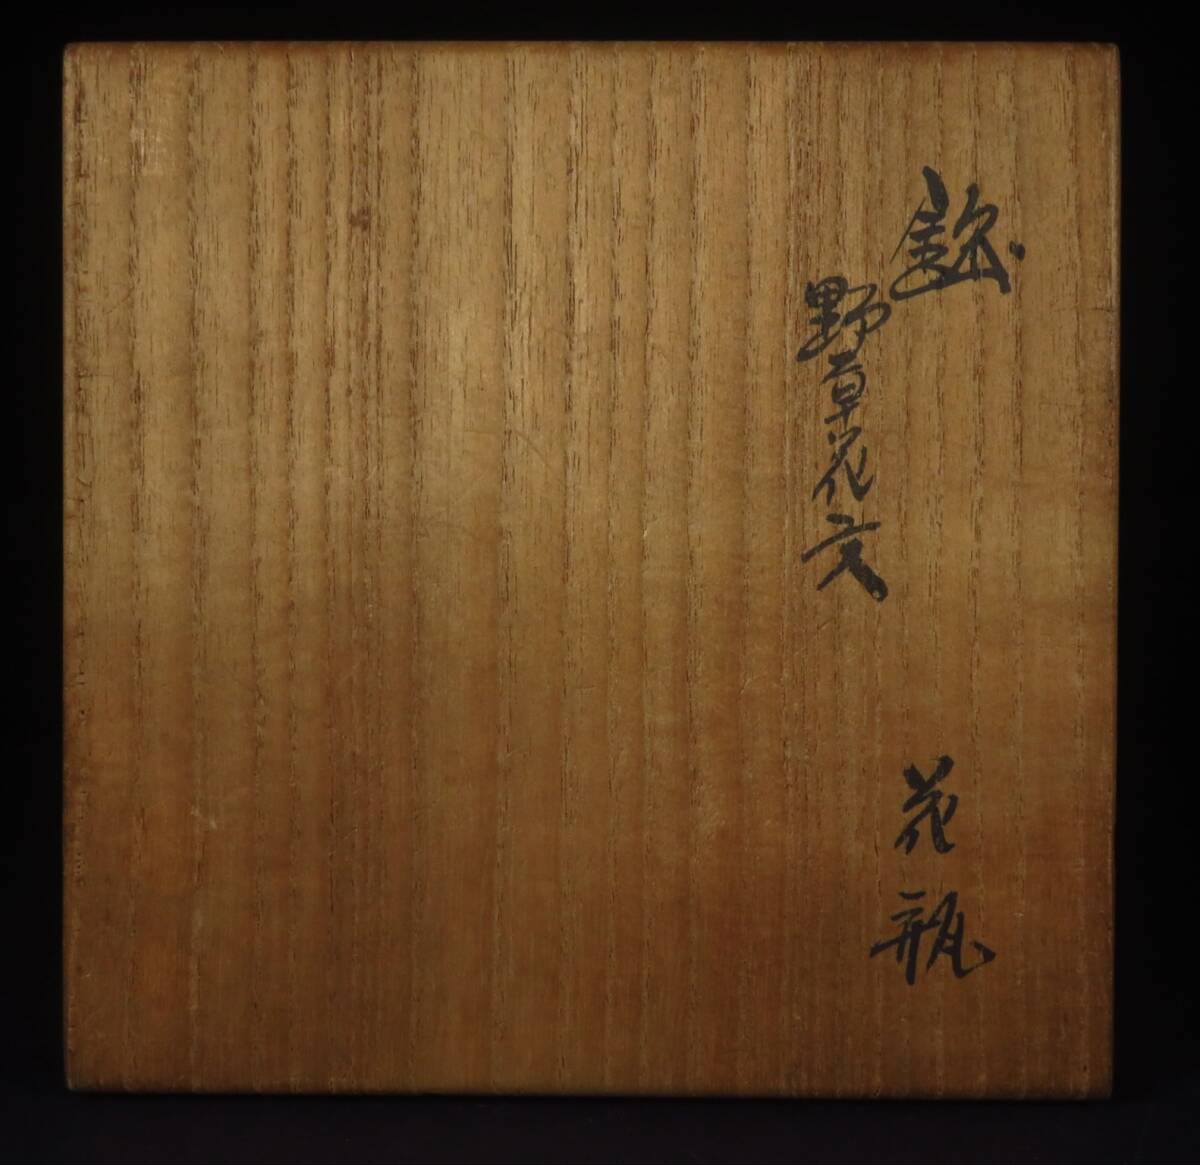 野草花文
花瓶